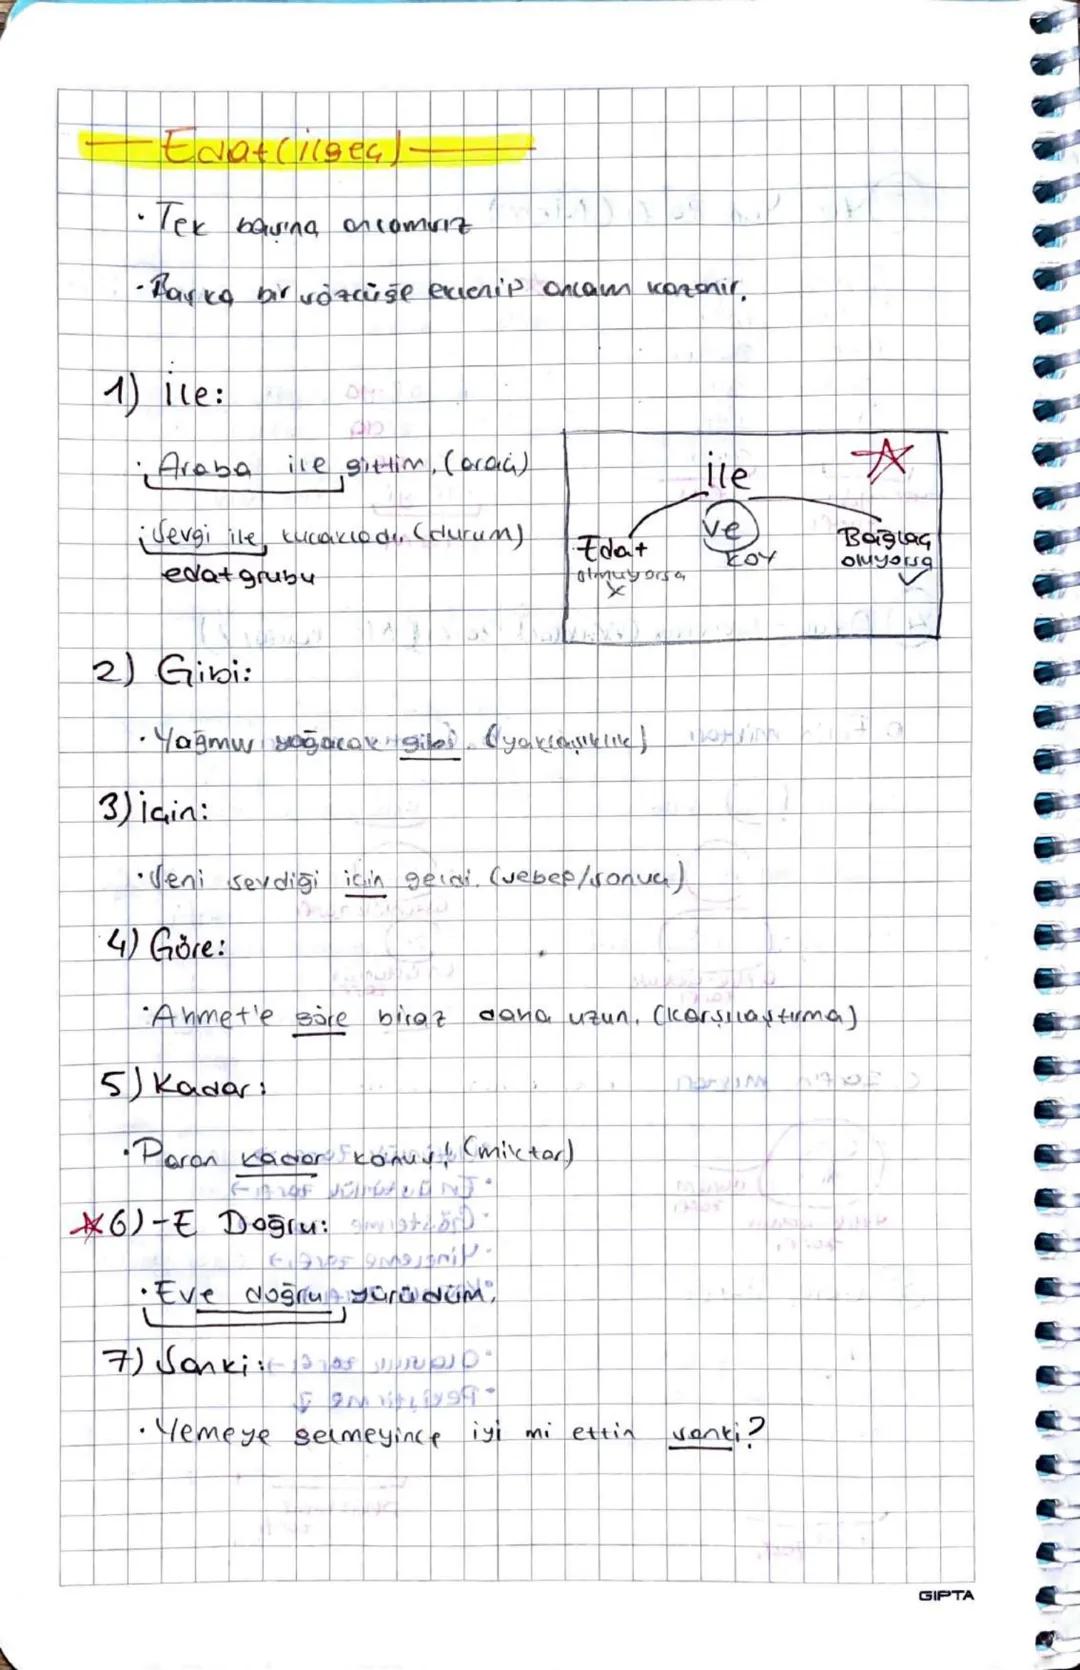 Edat (ilgeç)
· Tek başına anlamsız
· Başka bir sözcüğe eklenip anlam kazanır.
1) İle:
· Araba ile gittim. (araç)
· Sevgi ile kucakladı. (durum)
edat grubu
ile
ve
koy
Edat
olmuyorsa
x
Bağlaç
oluyorsa
✓
2) Gibi:
· Yağmur yağacak gibi. (yaklaşıklık)
3) İçin:
· Seni sevdiği için geldi. (sebep/sonuç)
4) Göre:
· Ahmet'e göre biraz daha uzun. (karşılaştırma)
5) Kadar:
· Paran kadar konuş! (miktar)
6) -E Doğru:
· Eve doğru yürüdüm.
7) Sanki:
· Yemeye gelmeyince iyi mi ettin sanki?
GIPTA